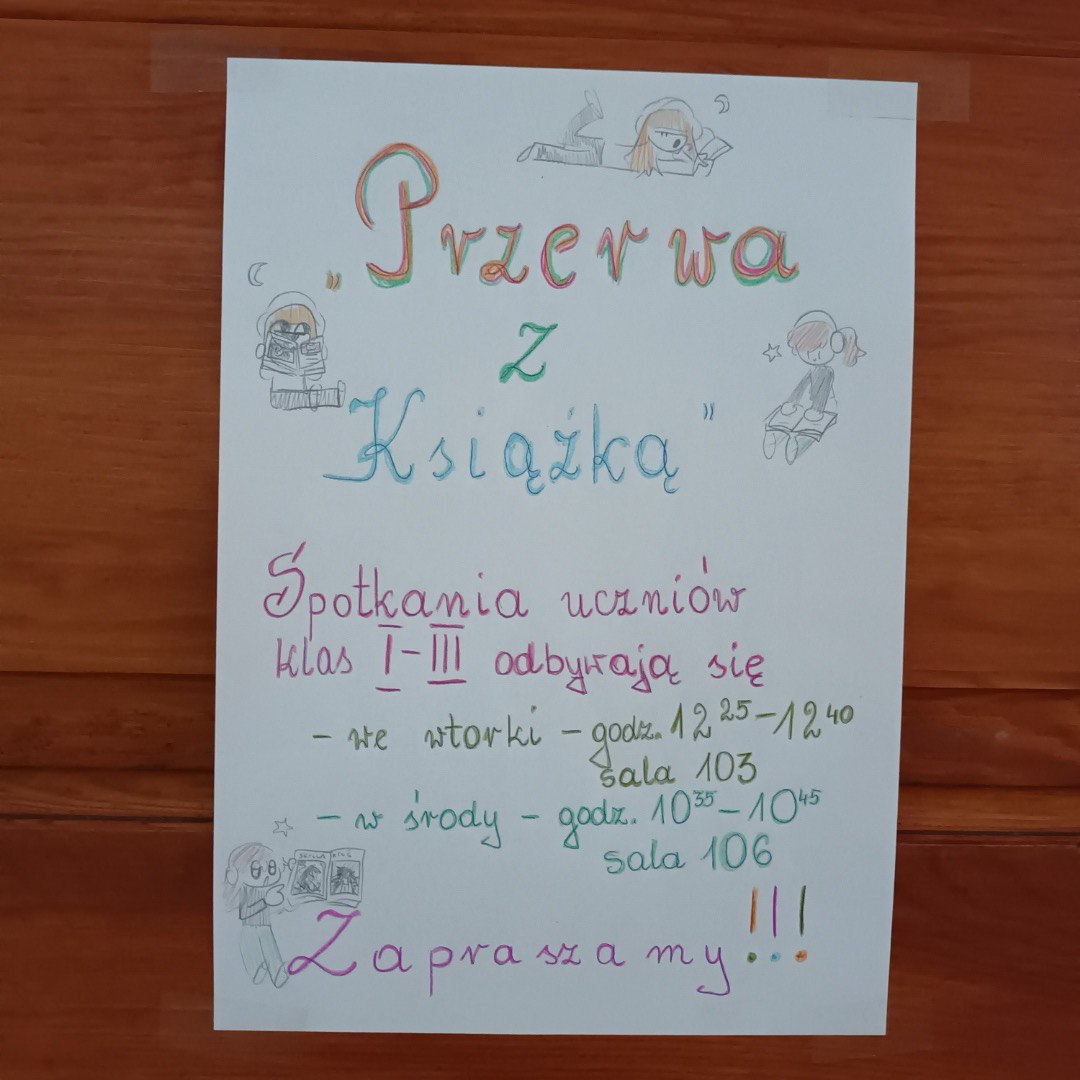 „Przerwa
z
Książką”
Spotkania uczniów
klas I-III odbywają się
- we wtorki - godz. 12²⁵-12⁴⁰
sala 103
- w środy - godz. 10³⁵-10⁴⁵
sala 106
Zapraszamy!!!